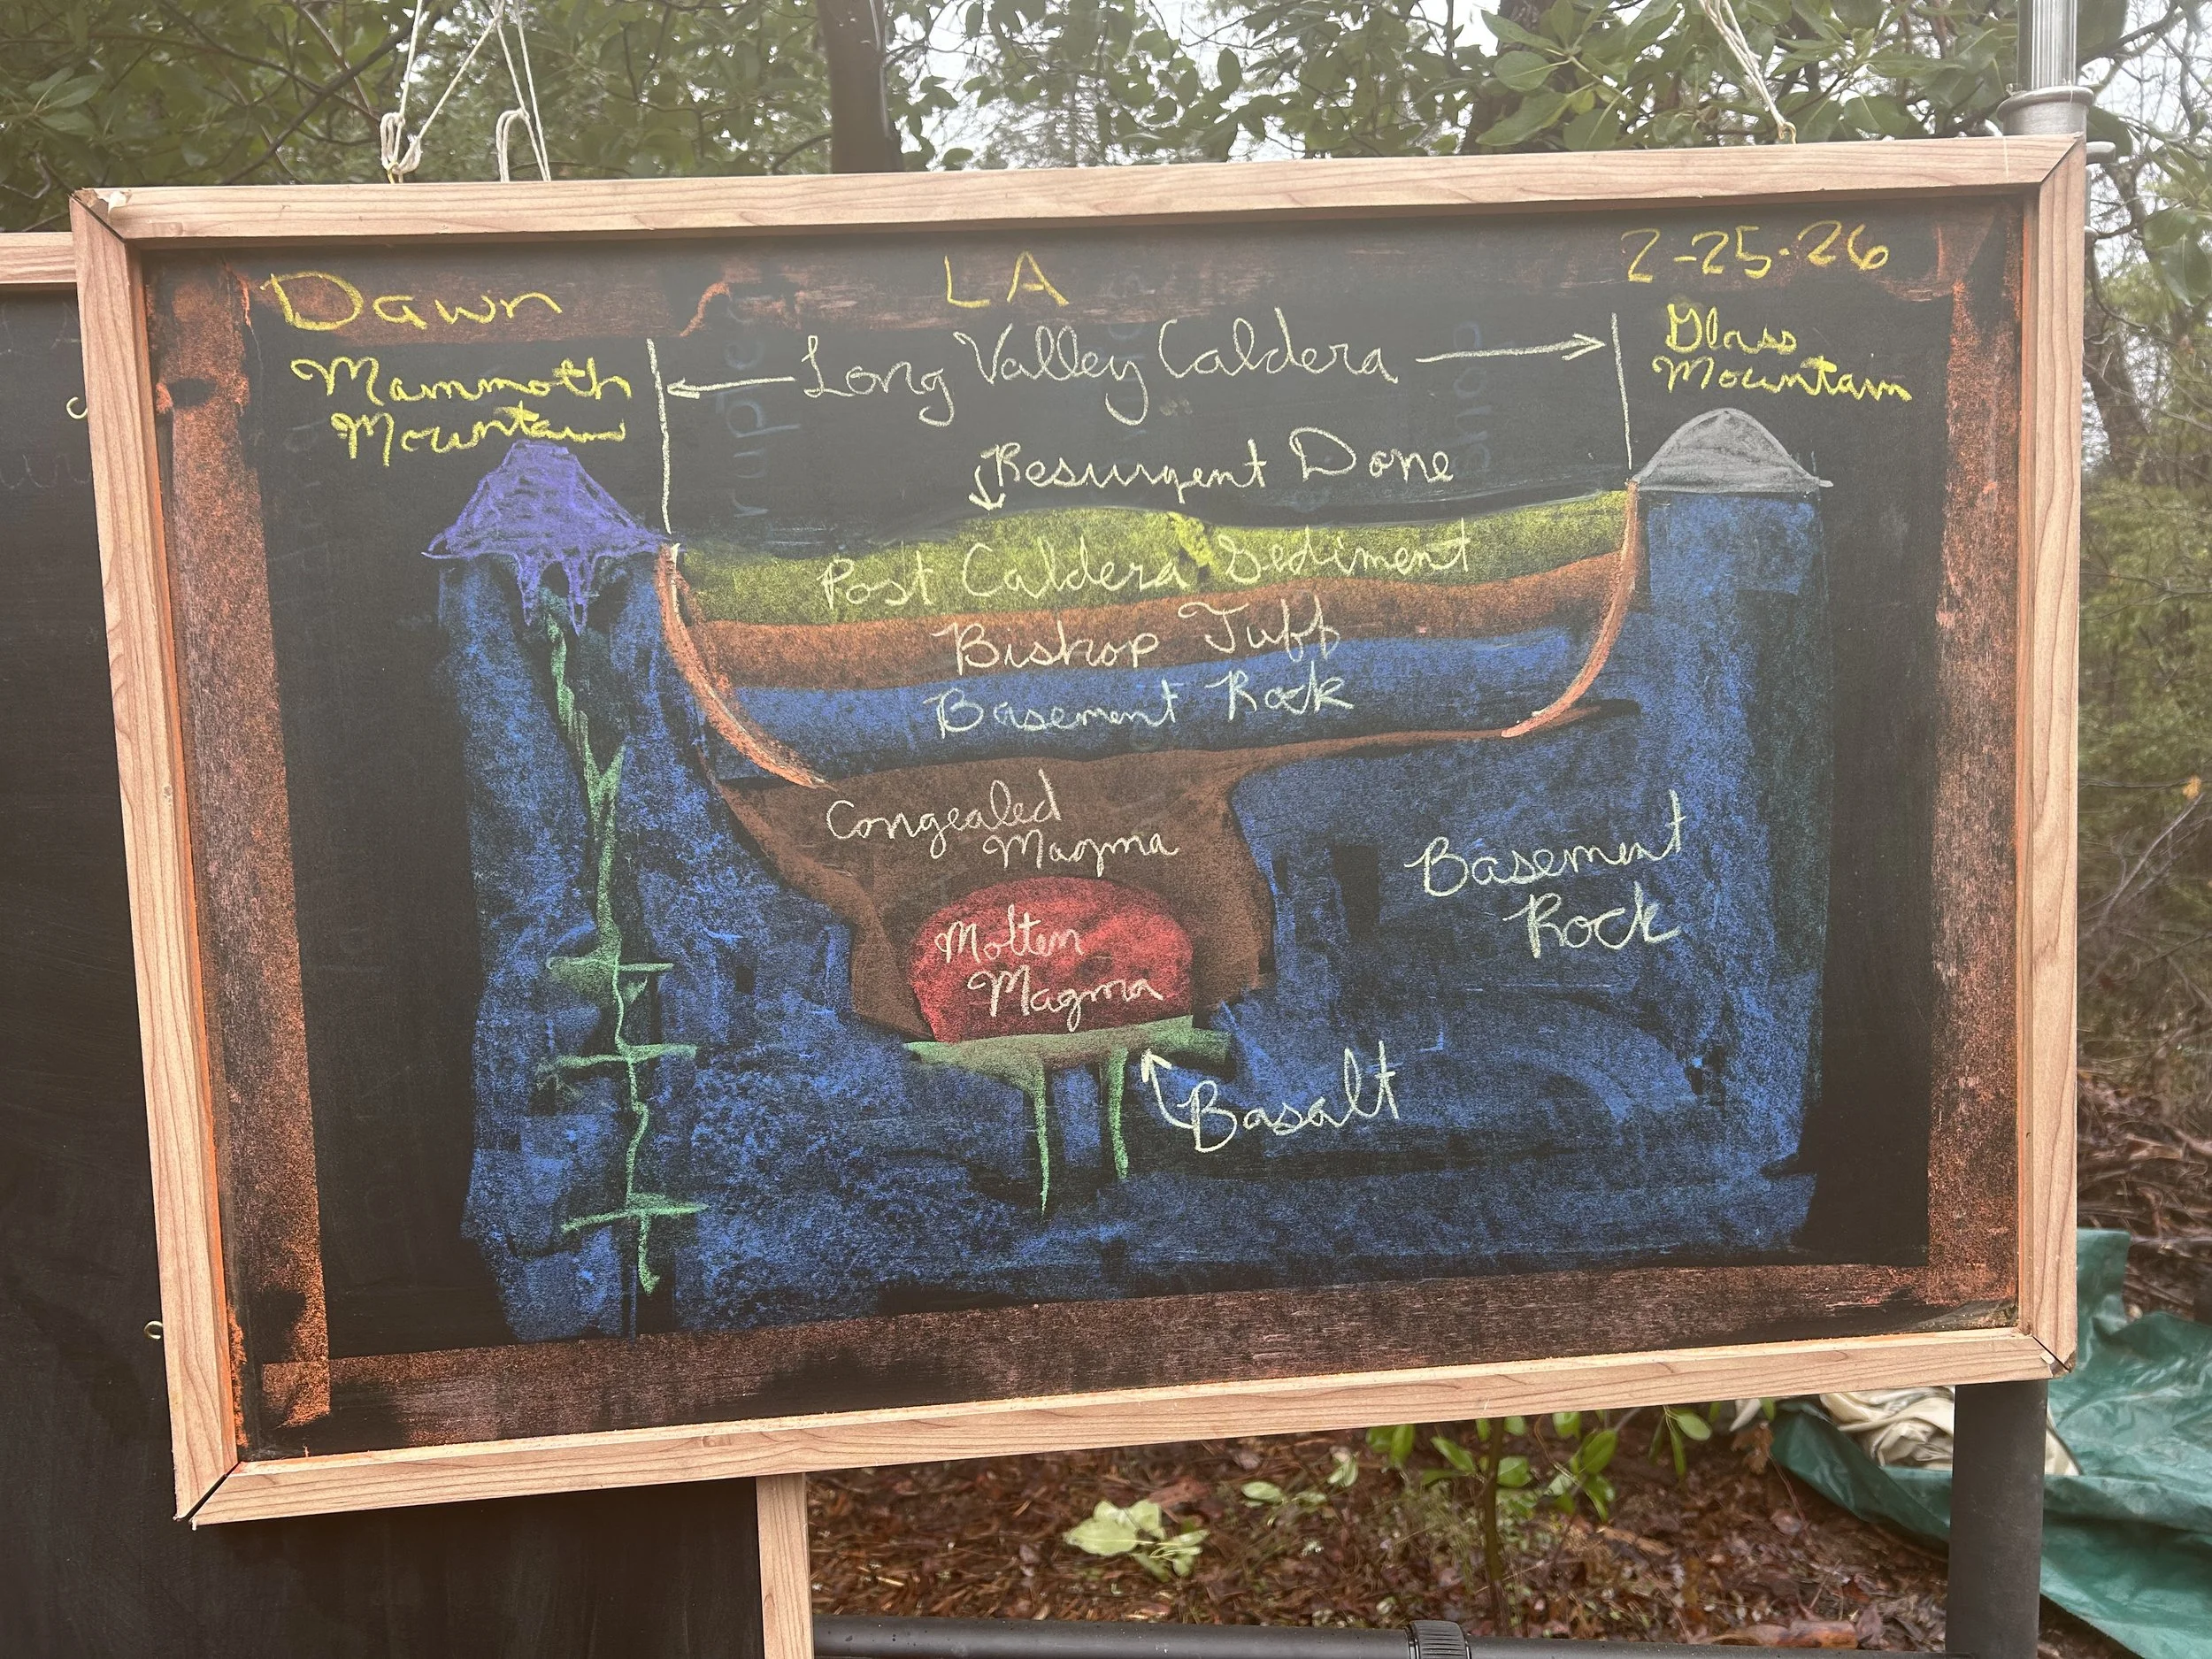 Dawn LA 2-25-26
Mammoth
Mountain
Long Valley Caldera
Glass
Mountain
Resurgent Done
Post Caldera Sediment
Bishop Tuff
Basement Rock
Congealed
Magma
Molten
Magma
Basement
Rock
Basalt